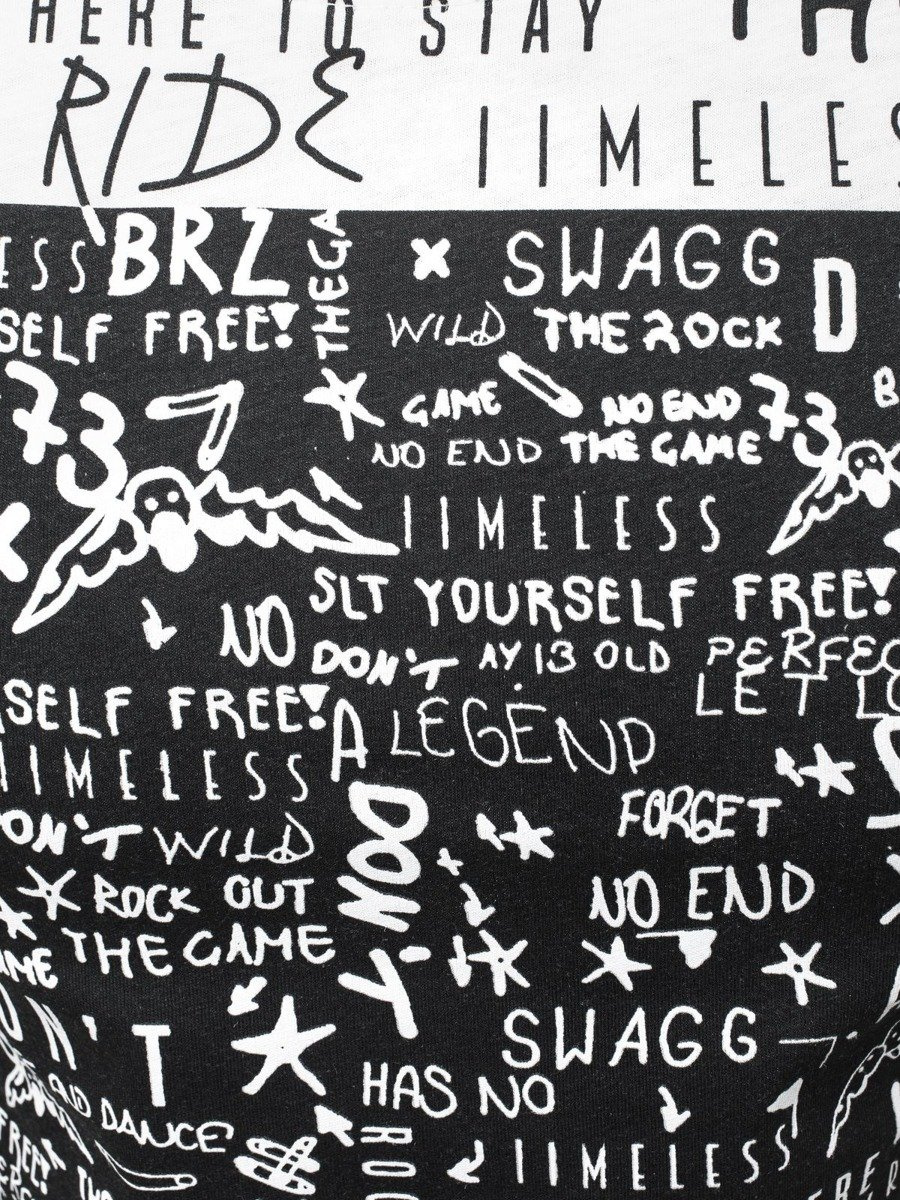 HERE TO STAY
RIDE IIMELES
ESS BRZ THE GA SWAGG D
SELF FREE! WILD THE ROCK
73 GAME NO END 73 B
NO END THE GAME
IIMELESS
SLT YOURSELF FREE!
NO DON'T AY 13 OLD PERFEC
SELF FREE! A LEGEND LET LO
IIMELESS
ON'T WILD DON'T FORGET
ROCK OUT NO END
THE GAME
AME
ON'T SWAGG
HAS NO
AND DANCE
IIMELESS
FREE!